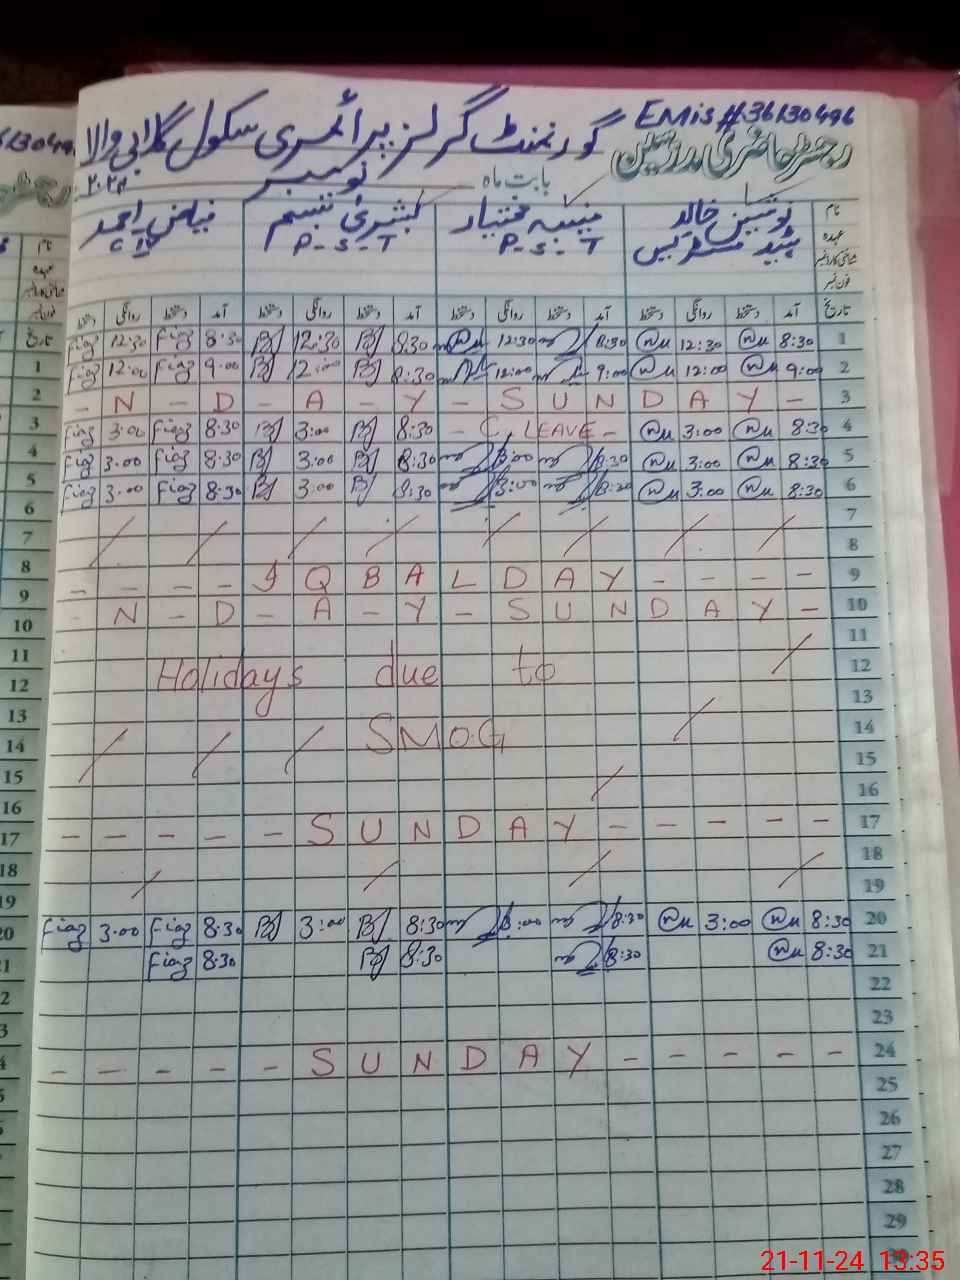 EMis # 36130496
گورنمنٹ گرلز پرائمری سکول گلابی والا
رجسٹر حاضری مدرسین
بابت ماہ نومبر ۲۰۲۴
نام نوشین خالد منیبہ مختیار بشریٰ تبسم فیاض احمد
عہدہ ہیڈ مسٹریس P-S-T P-S-T C IV
شناختی کارڈ نمبر
فون نمبر
تاریخ آمد دستخط روانگی دستخط آمد دستخط روانگی دستخط آمد دستخط روانگی دستخط آمد دستخط روانگی دستخط
Fiaz 12:30 Fiaz 8:30 12:30 8:30 12:30 8:30 12:30 8:30 1
Fiaz 12:00 Fiaz 9:00 12:00 8:30 12:00 9:00 12:00 9:00 2
- N - D - A - Y - S U N D A Y - 3
Fiaz 3:00 Fiaz 8:30 3:00 8:30 - C. LEAVE - 3:00 8:30 4
Fiaz 3:00 Fiaz 8:30 3:00 8:30 3:00 8:30 3:00 8:30 5
Fiaz 3:00 Fiaz 8:30 3:00 8:30 3:00 8:30 3:00 8:30 6
7
8
- - - - I Q B A L D A Y - - - - 9
- N - D - A - Y - S U N D A Y - 10
11
Holidays due to 12
13
SMOG 14
15
16
- - - - - S U N D A Y - - - - - 17
18
19
Fiaz 3:00 Fiaz 8:30 3:00 8:30 3:00 8:30 3:00 8:30 20
Fiaz 8:30 8:30 8:30 8:30 21
22
23
- - - - - S U N D A Y - - - - - 24
25
26
27
28
29
30
21-11-24 13:35